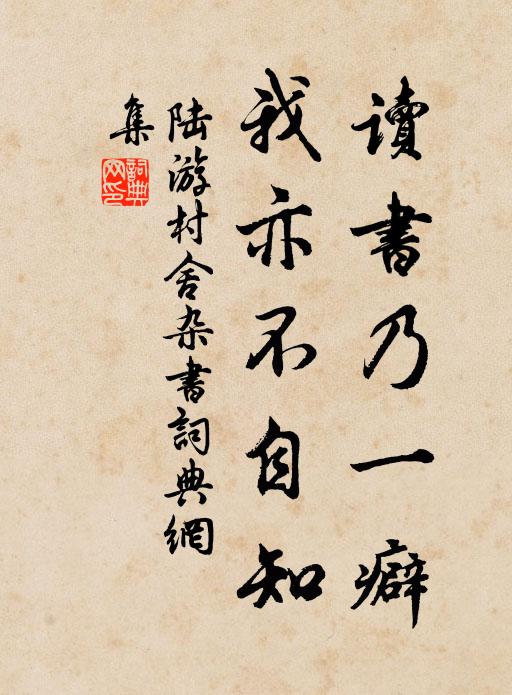 讀書乃一癖
我亦不自知
陆游村舍杂書詞典網
集
詞典网印